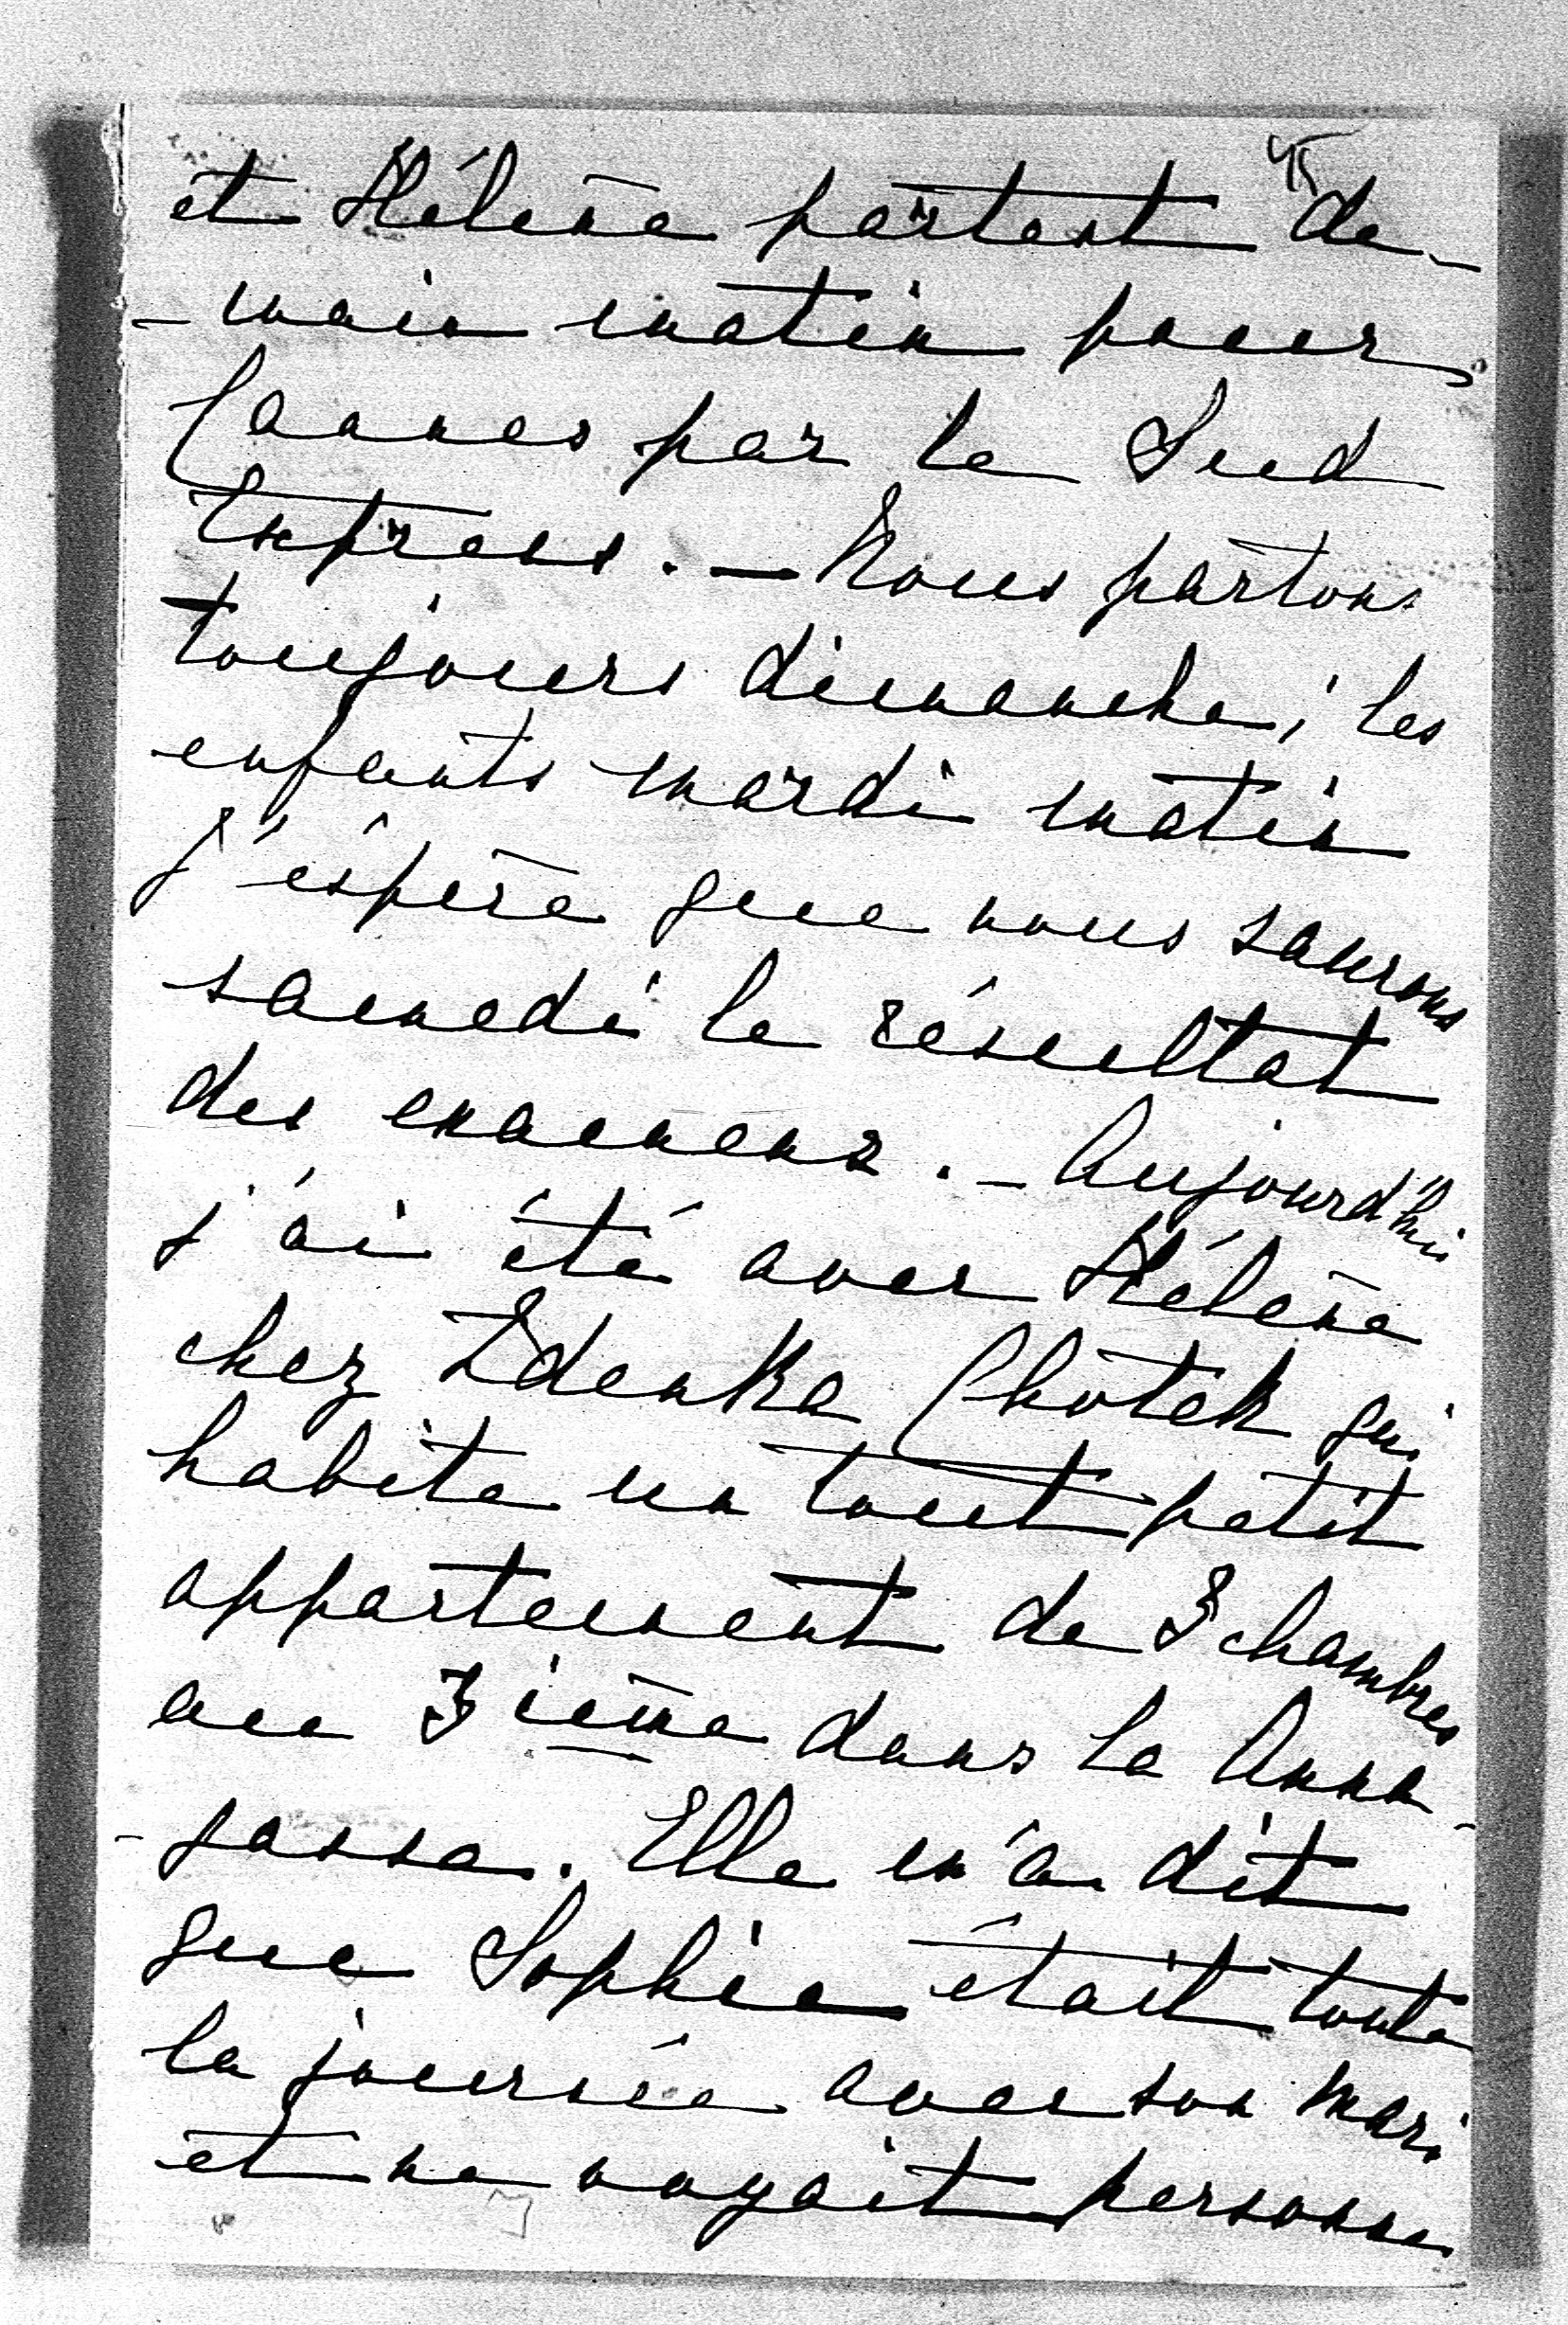 45
et Hélène partent de-
-main matin pour
Cannes par le Sud
Express. — Nous partons
toujours dimanche, les
enfants mardi matin
J'espère que nous saurons
samedi le résultat
des examens. — Aujourd'hui
j'ai été avec Hélène
chez Zdenka Chotek qui
habite un tout petit
appartement de 3 chambres
au 3ième dans la Anna-
-gasse. Elle m'a dit
que Sophie était toute
la journée avec son mari
et ne voyait personne